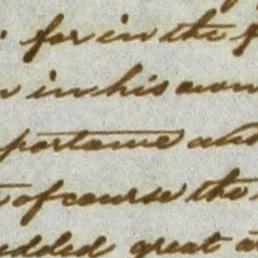 for in the
in his own
portance and
of course the
added great